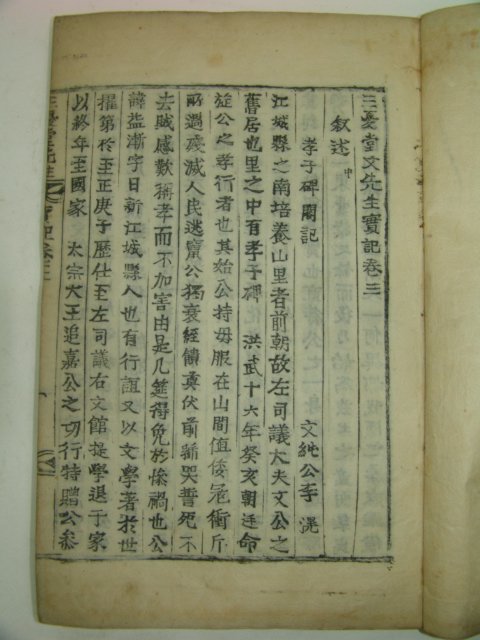 三憂堂文先生實記卷三
叙述中
孝子碑閣記
文純公李滉
江城縣之南培養山里者前朝故左司議大夫文公之
舊居也里之中有孝子碑洪武十六年癸亥朝廷命
旌公之孝行者也其始公持母服在山間值倭寇衝斥
所過殘滅人民逃竄公獨衰絰饋奠伏前號哭誓死不
去賊感歎稱孝而不加害由是几筵得免於慘禍也公
諱益漸字日新江城縣人也有行誼又以文學著於世
擢第於至正庚子歷仕至左司議右文館提學退于家
以終年至國家太宗大王追嘉公之切行特贈公參
三憂堂先生實記卷三